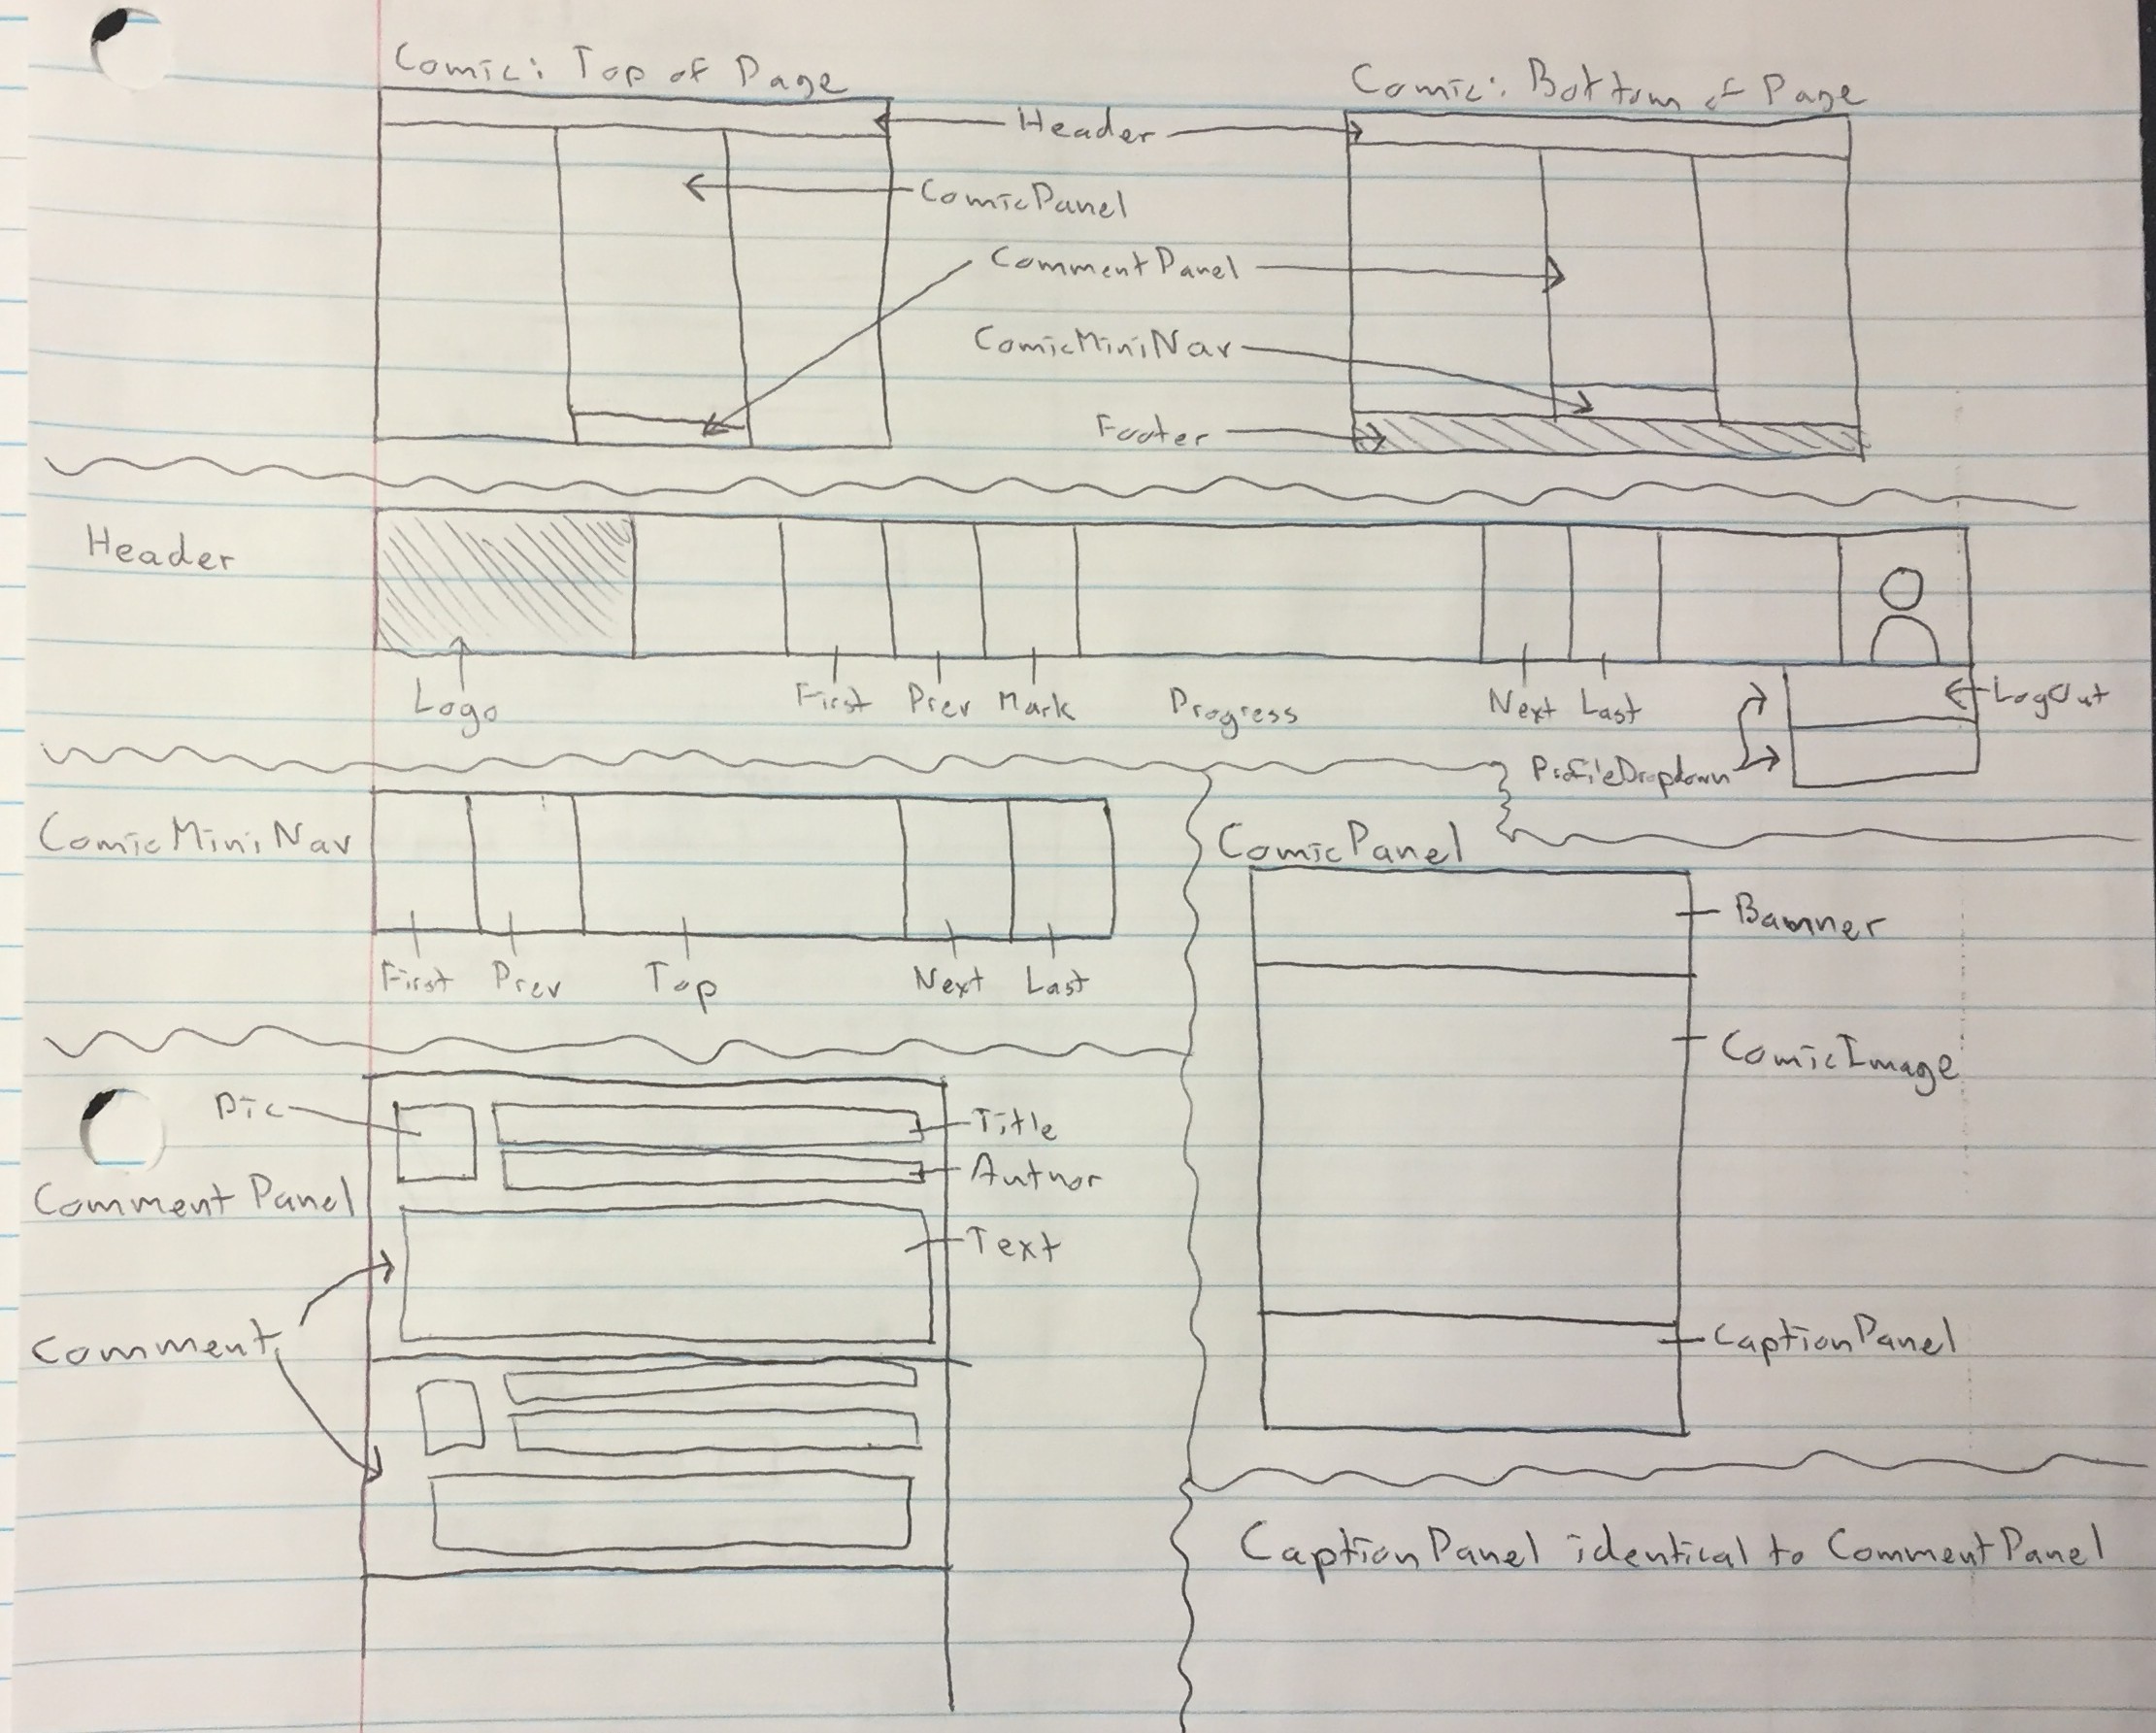 Comic: Top of Page
Comic: Bottom of Page
Header
ComicPanel
CommentPanel
ComicMiniNav
Footer
Header
Logo
First
Prev
Mark
Progress
Next
Last
LogOut
ProfileDropdown
ComicMiniNav
First
Prev
Top
Next
Last
ComicPanel
Banner
ComicImage
CaptionPanel
Pic
Title
Author
Comment Panel
Text
Comment
CaptionPanel identical to CommentPanel